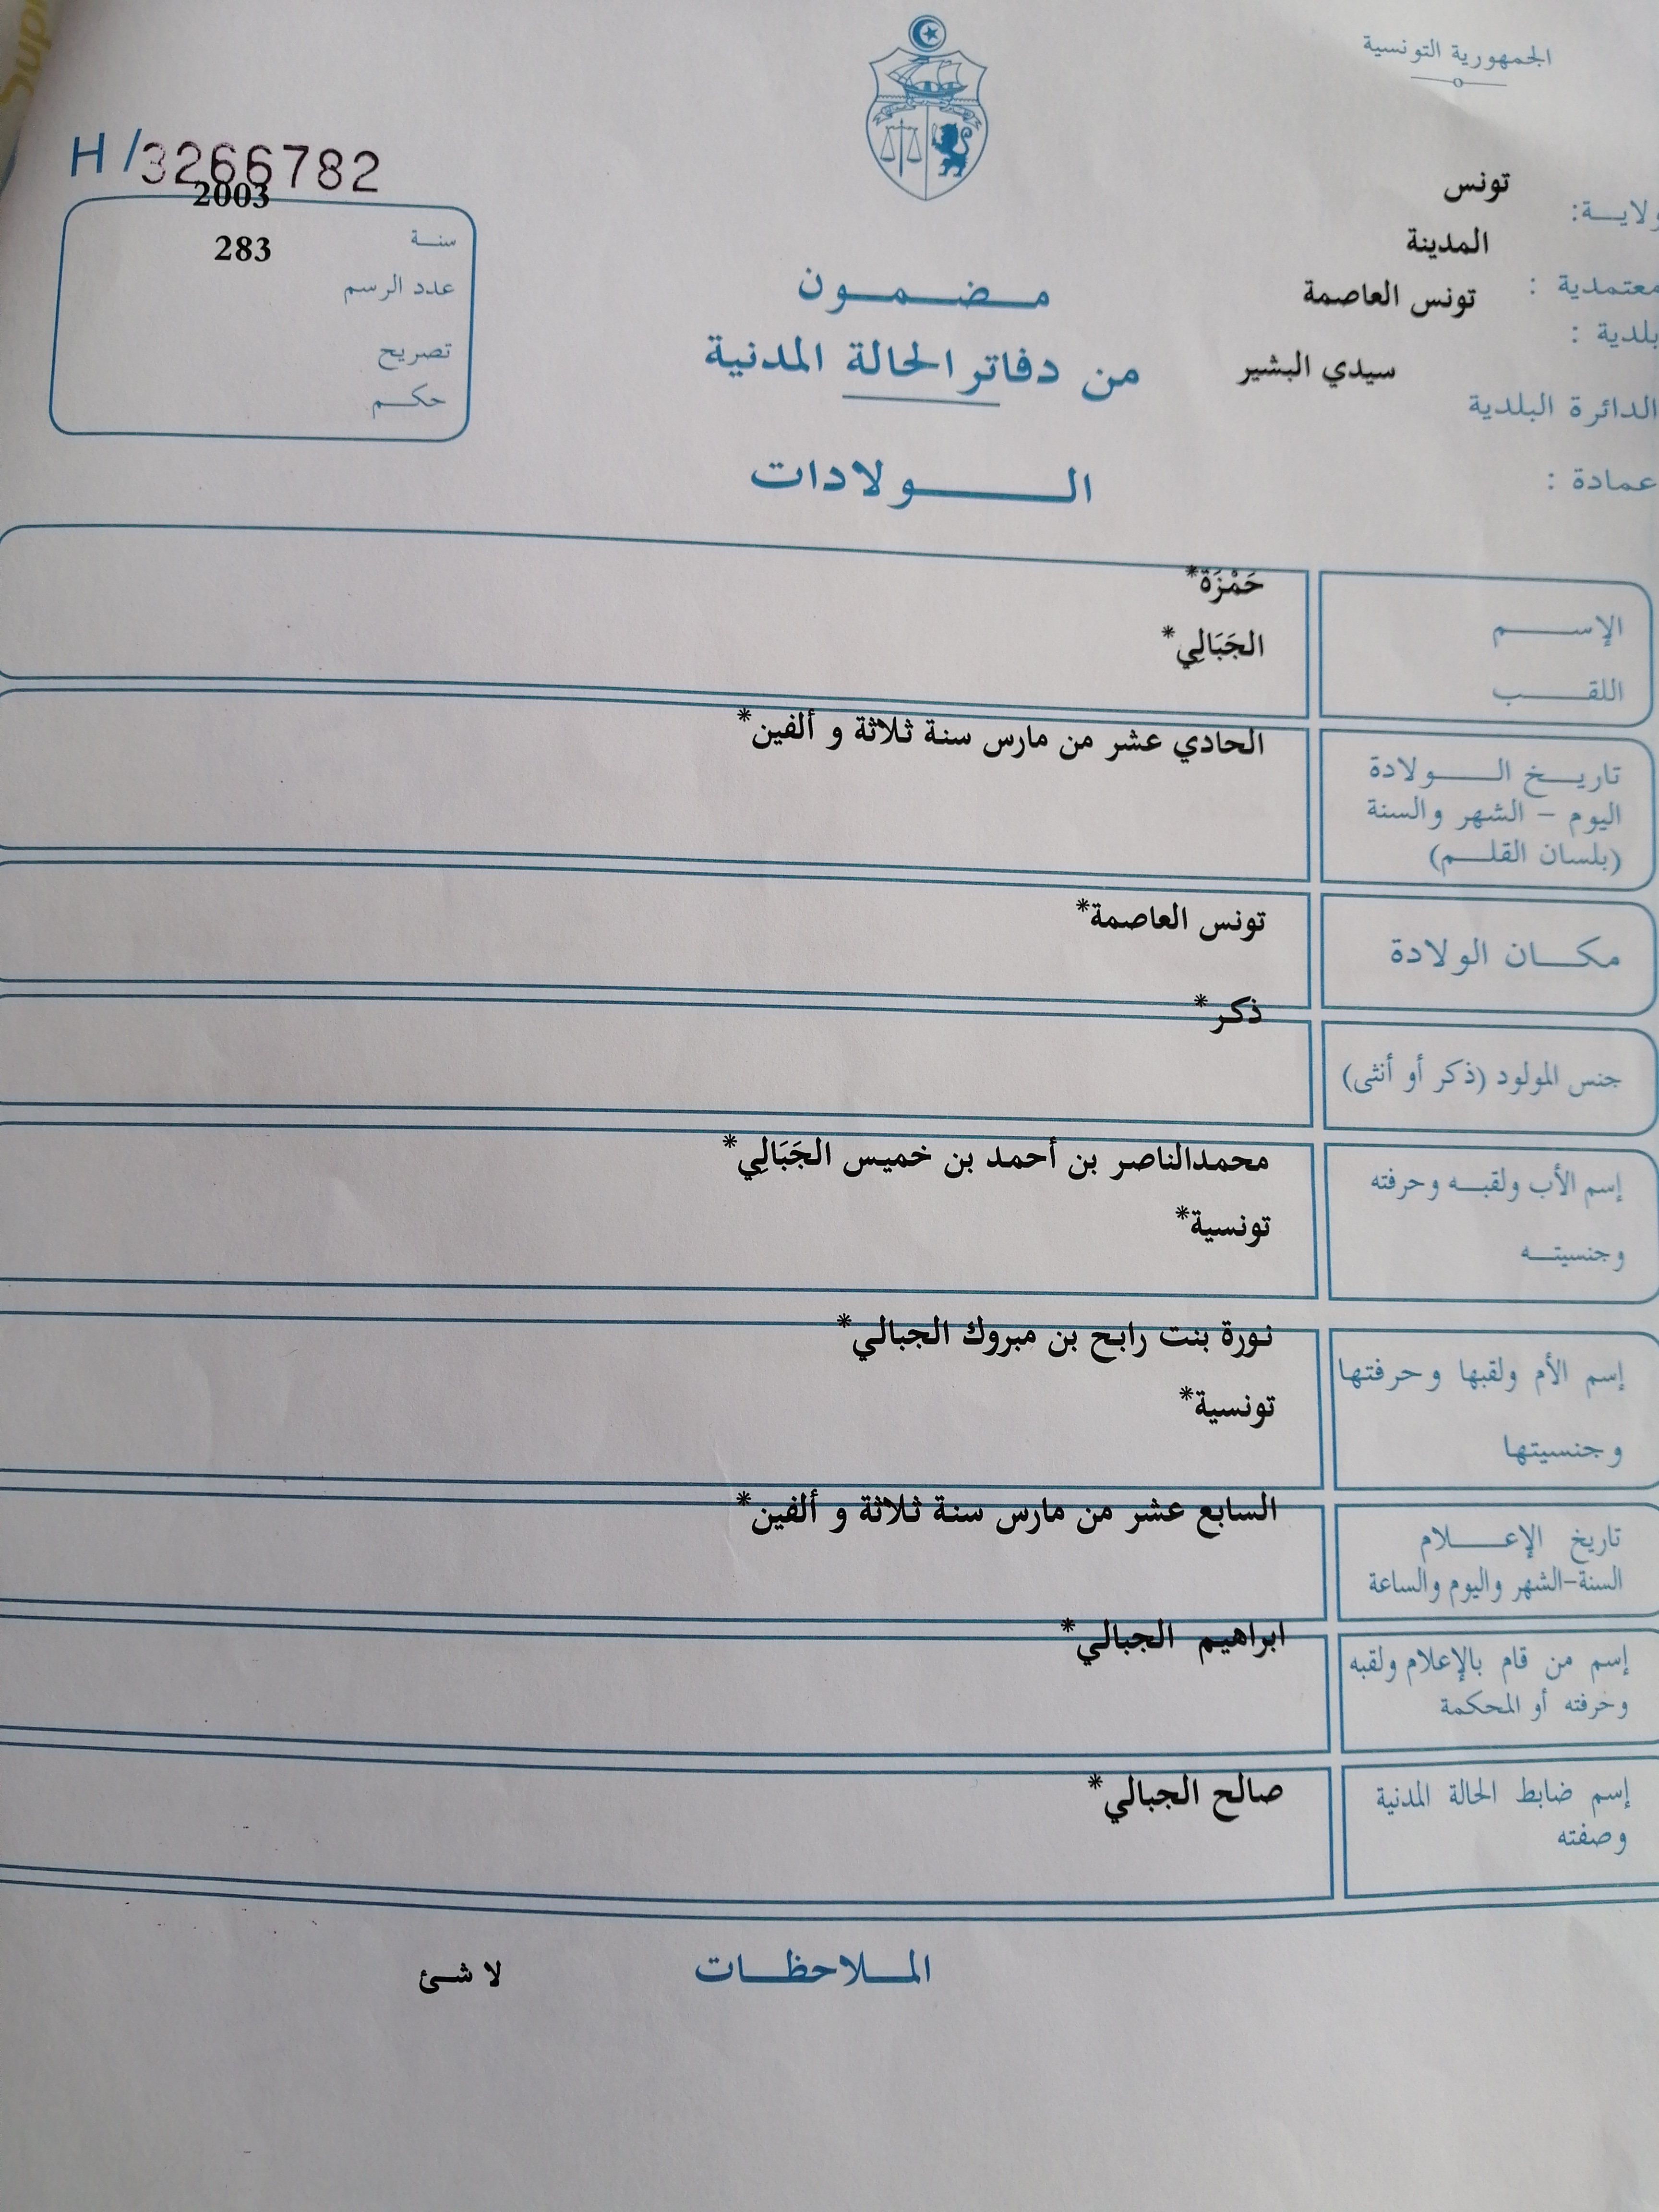 الجمهورية التونسية
H/3266782
ولايـــة: تونس
معتمدية : المدينة
بلدية : تونس العاصمة
الدائرة البلدية سيدي البشير
عمادة :
سنـــة 2003
عدد الرسم 283
تصريح
حكـــم
مـــضـــمـــون
من دفاتر الحالة المدنية
الـــولادات
الإســـم حَمْزَة*
اللقـــب الجَبَالِي*
تاريـــخ الـــولادة الحادي عشر من مارس سنة ثلاثة و ألفين*
اليوم – الشهر والسنة
(بلسان القلـــم)
مكـــان الولادة تونس العاصمة*
جنس المولود (ذكر أو أنثى) ذكر*
إسم الأب ولقبـــه وحرفته محمدالناصر بن أحمد بن خميس الجَبَالِي*
وجنسيتـــه تونسية*
إسم الأم ولقبها وحرفتها نورة بنت رابح بن مبروك الجبالي*
وجنسيتها تونسية*
تاريخ الإعـــلام السابع عشر من مارس سنة ثلاثة و ألفين*
السنة-الشهر واليوم والساعة
إسم من قام بالإعلام ولقبه ابراهيم الجبالي*
وحرفته أو المحكمة
إسم ضابط الحالة المدنية صالح الجبالي*
وصفته
المـــلاحظـــات لا شئ